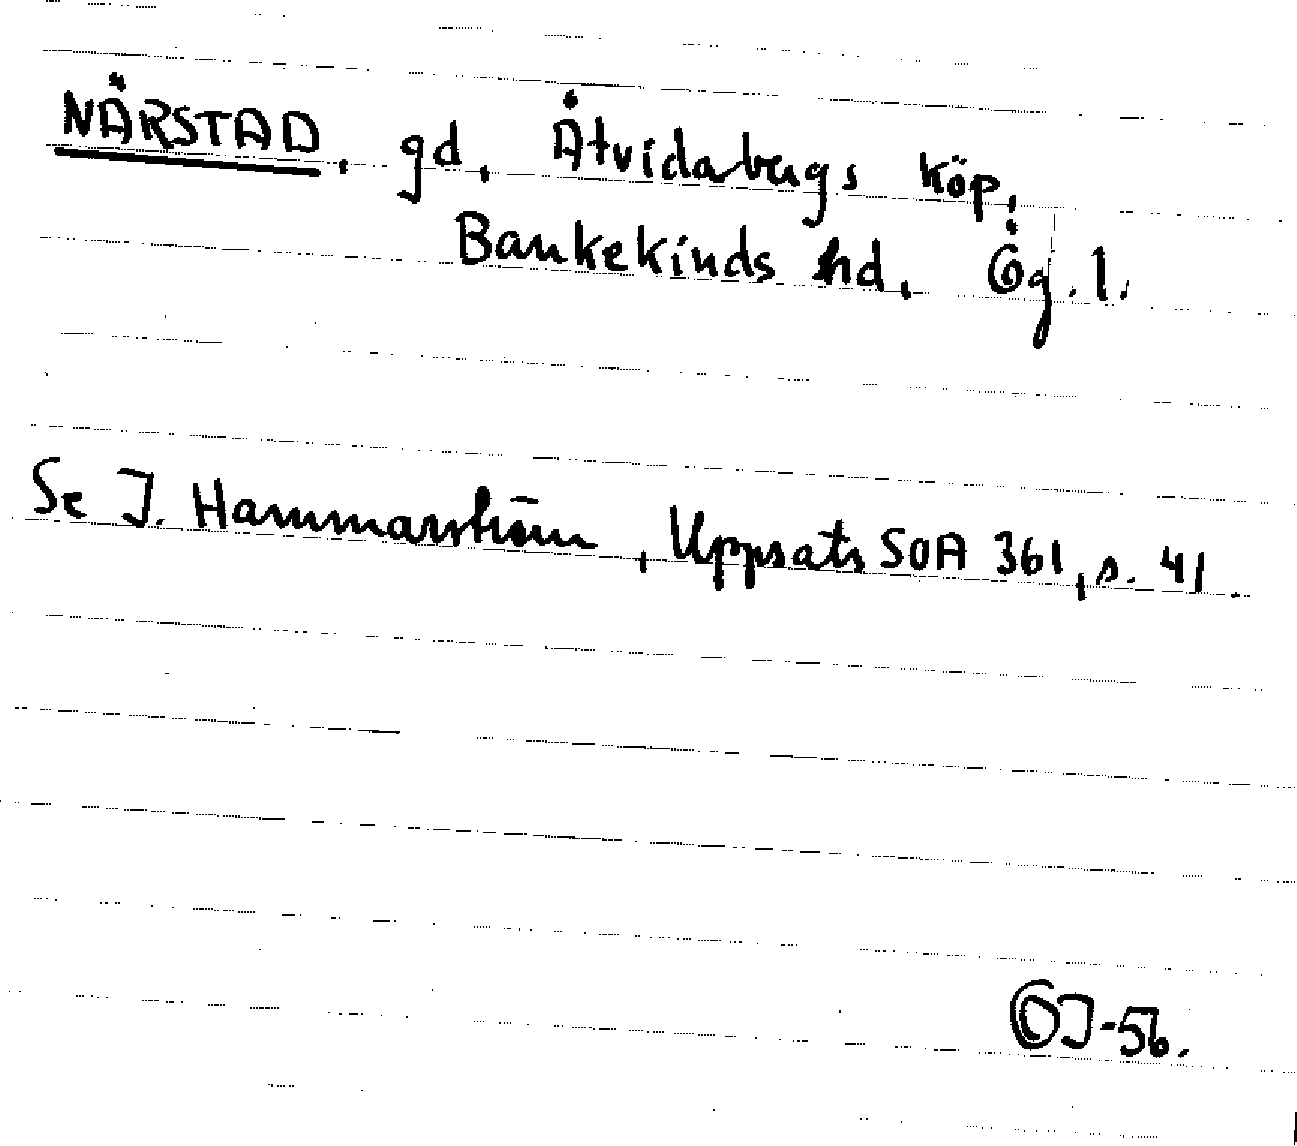 NÄRSTAD, gd, Åtvidabergs köp,
Bankekinds hd, Ög. l.
Se I. Hammarström, Uppsats SOA 361, s. 41.
OJ-56.